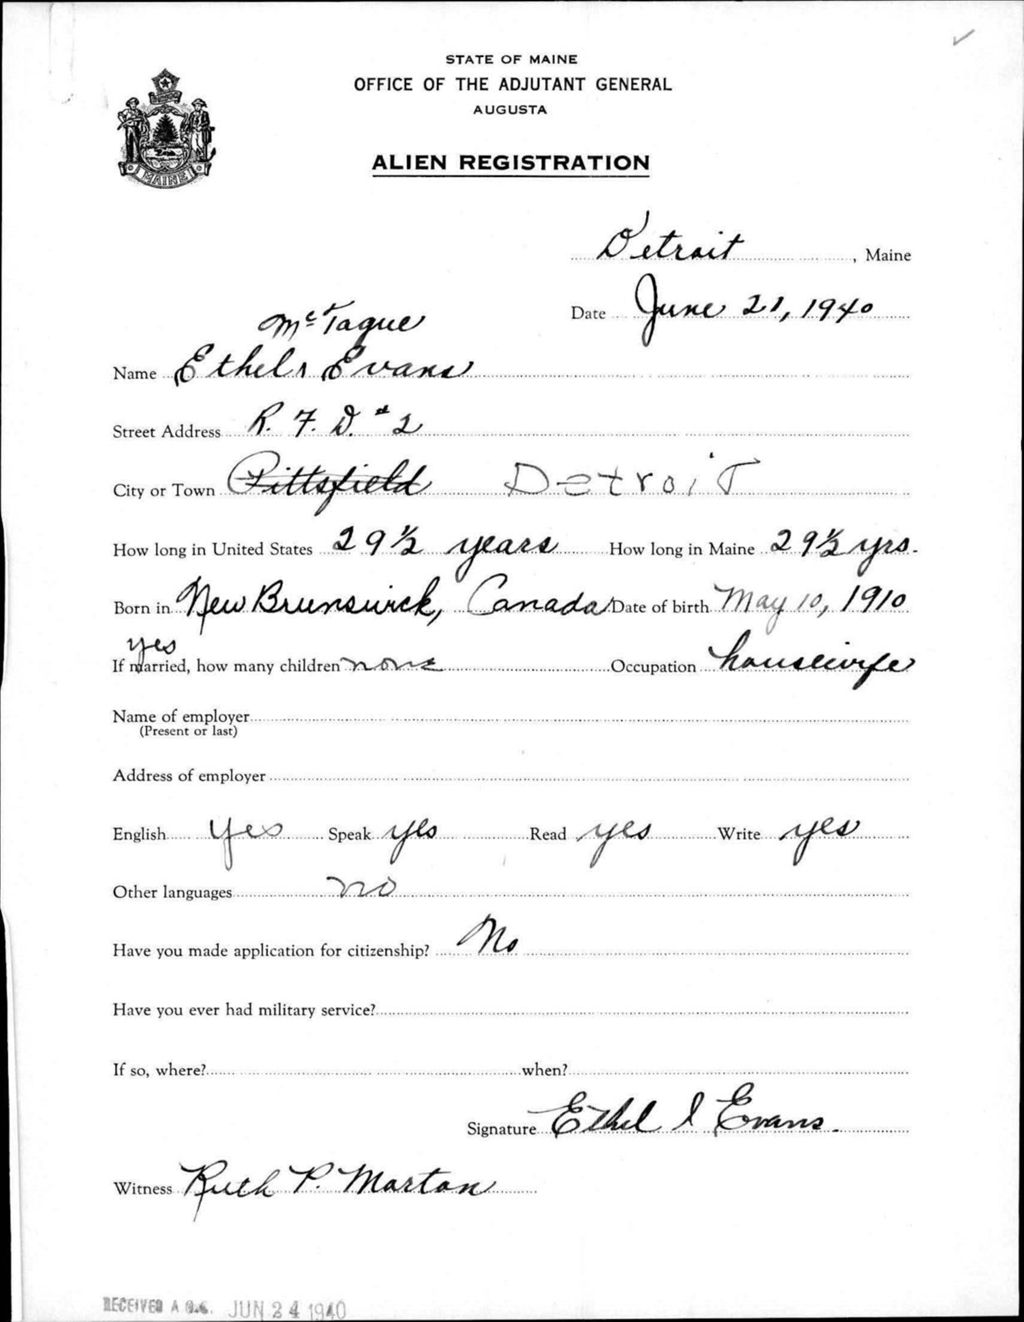 STATE OF MAINE
OFFICE OF THE ADJUTANT GENERAL
AUGUSTA
ALIEN REGISTRATION
MAINE
Detroit, Maine
Date June 21, 1940
McTague
Name Ethel Evans
Street Address R. F. D. #2
City or Town Pittsfield Detroit
How long in United States 29 ½ years How long in Maine 29 ½ yrs.
Born in New Brunswick, Canada Date of birth May 10, 1910
yes
If married, how many children none Occupation housewife
Name of employer
(Present or last)
Address of employer
English yes Speak yes Read yes Write yes
Other languages no
Have you made application for citizenship? No
Have you ever had military service?
If so, where? when?
Signature Ethel I Evans.
Witness Ruth P. Marton
RECEIVED A.G.O. JUN 24 1940